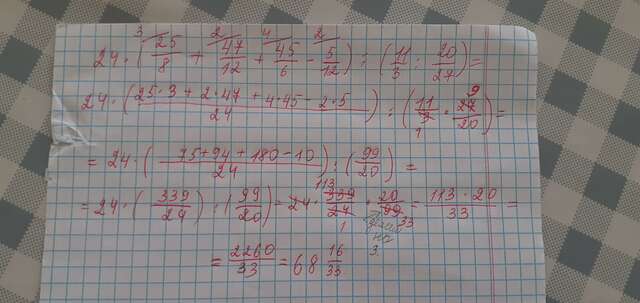 24 · (25/8 + 47/12 + 45/6 - 5/12) : (11/3 : 20/27) =
24 · (25·3 + 2·47 + 4·45 - 2·5 / 24) : (11/3 · 27/20) =
= 24 · (75+94+180-10 / 24) : (99/20) =
= 24 · (339/24) : (99/20) = 24 · 339/24 · 20/99 = 113 · 20/33 =
= 2260/33 = 68 16/33